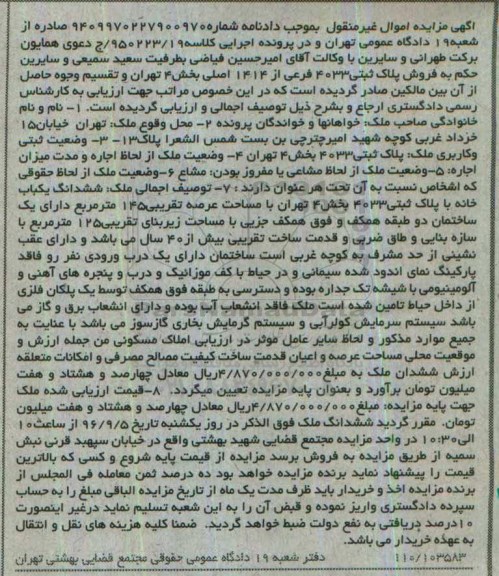 آگهی مزایده اموال غیرمنقول بموجب دادنامه شماره ۹۴۰۹۹۷۰۲۲۷۹۰۰۹۷۰ صادره از
شعبه ۱۹ دادگاه عمومی تهران و در پرونده اجرایی کلاسه ۹۵۰۲۲۳/۱۹/ج دعوی همایون
برکت طهرانی و سایرین با وکالت آقای امیرحسین فیاضی بطرفیت سعید سمیعی و سایرین
حکم به فروش پلاک ثبتی ۴۰۳۳ فرعی از ۱۴۱۴ اصلی بخش ۴ تهران و تقسیم وجوه حاصل
از آن بین مالکین صادر گردیده است که در این خصوص مراتب جهت ارزیابی به کارشناس
رسمی دادگستری ارجاع و بشرح ذیل توصیف اجمالی و ارزیابی گردیده است. ۱- نام و نام
خانوادگی صاحب ملک: خواهانها و خواندگان پرونده ۲- محل وقوع ملک: تهران خیابان ۱۵
خرداد غربی کوچه شهید امیرچترچی بن بست شمس الشعرا پلاک ۱۳- ۳- وضعیت ثبتی
وکاربری ملک: پلاک ثبتی ۴۰۳۳ بخش ۴ تهران ۴- وضعیت ملک از لحاظ اجاره و مدت میزان
اجاره: ۵-وضعیت ملک از لحاظ مشاعی یا مفروز بودن: مشاع ۶-وضعیت ملک از لحاظ حقوقی
که اشخاص نسبت به آن تحت هر عنوان دارند: ۷- توصیف اجمالی ملک: ششدانگ یکباب
خانه با پلاک ثبتی ۴۰۳۳ بخش ۴ تهران با مساحت عرصه تقریبی ۱۴۵ مترمربع دارای یک
ساختمان دو طبقه همکف و فوق همکف جزیی با مساحت زیربنای تقریبی ۱۲۵ مترمربع با
سازه بنایی و طاق ضربی و قدمت ساخت تقریبی بیش از ۴۰ سال می باشد و دارای عقب
نشینی از حد مشرف به کوچه غربی است ساختمان دارای یک درب ورودی نفر رو فاقد
پارکینگ نمای اندود شده سیمانی و در حیاط با کف موزائیک و درب و پنجره های آهنی و
آلومینیومی با شیشه تک جداره بوده و دسترسی به طبقه فوق همکف توسط یک پلکان فلزی
از داخل حیاط تامین شده است ملک فاقد انشعاب آب بوده و دارای انشعاب برق و گاز می
باشد سیستم سرمایش کولرآبی و سیستم گرمایش بخاری گازسوز می باشد با عنایت به
جمیع موارد مذکور و لحاظ سایر عامل موثر در ارزیابی املاک مسکونی من جمله ارزش و
موقعیت محلی مساحت عرصه و اعیان قدمت ساخت کیفیت مصالح مصرفی و امکانات متعلقه
ارزش ششدان ملک به مبلغ ۴/۸۷۰/۰۰۰/۰۰۰ ریال معادل چهارصد و هشتاد و هفت
میلیون تومان برآورد و بعنوان پایه مزایده تعیین میگردد. ۸-قیمت ارزیابی شده ملک
جهت پایه مزایده: مبلغ ۴/۸۷۰/۰۰۰/۰۰۰ ریال معادل چهارصد و هشتاد و هفت میلیون
تومان. مقرر گردید ششدانگ ملک فوق الذکر در روز یکشنبه تاریخ ۹۶/۹/۵ از ساعت ۱۰
الی ۱۰:۳۰ در واحد مزایده مجتمع قضایی شهید بهشتی واقع در خیابان سپهبد قرنی نبش
سمیه از طریق مزایده به فروش برسد مزایده از قیمت پایه شروع و کسی که بالاترین
قیمت را پیشنهاد نماید برنده مزایده خواهد بود ده درصد ثمن معامله فی المجلس از
برنده مزایده اخذ و خریدار باید ظرف مدت یک ماه از تاریخ مزایده الباقی مبلغ را به حساب
سپرده دادگستری واریز نموده و قبض آن را به این شعبه تسلیم نماید درغیر اینصورت
۱۰درصد دریافتی به نفع دولت ضبط خواهد گردید. ضمنا کلیه هزینه های نقل و انتقال
به عهده خریدار می باشد.
۱۱۰/۱۰۳۵۸۳ دفتر شعبه ۱۹ دادگاه عمومی حقوقی مجتمع قضایی بهشتی تهران